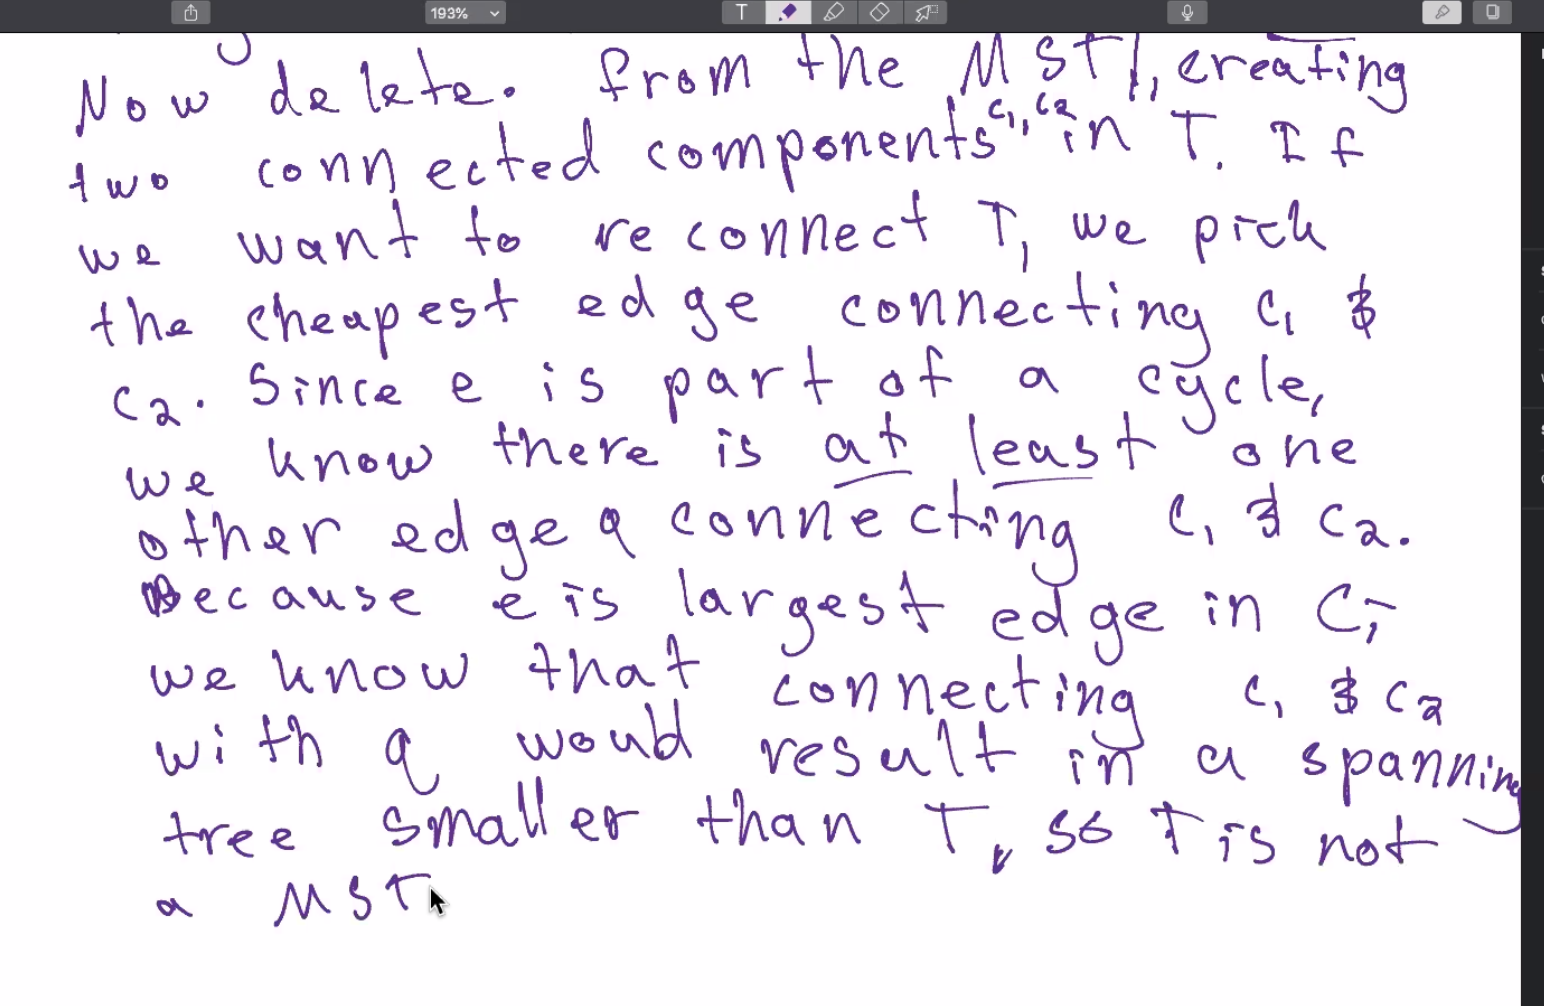 193%
T
Now delete. from the MST, creating
two connected components c1, c2 in T. If
we want to reconnect T, we pick
the cheapest edge connecting c1 &
c2. Since e is part of a cycle,
we know there is at least one
other edge q connecting c1 & c2.
Because e is largest edge in C,
we know that connecting c1 & c2
with q would result in a spanning
tree smaller than T, so T is not
a MST